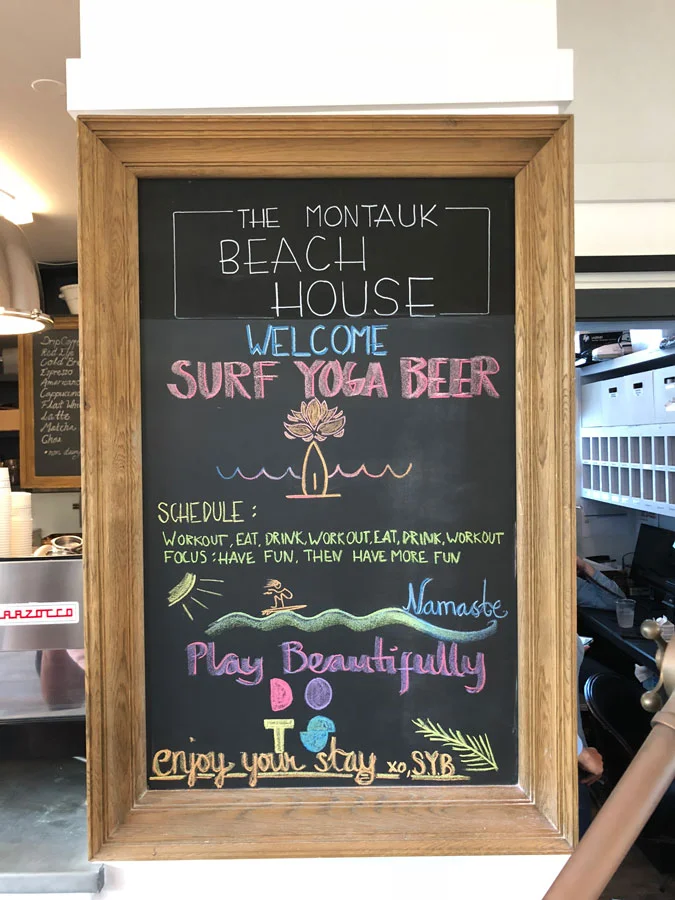 THE MONTAUK
BEACH
HOUSE
WELCOME
SURF YOGA BEER
SCHEDULE:
WORKOUT, EAT, DRINK, WORKOUT, EAT, DRINK, WORKOUT
FOCUS: HAVE FUN, THEN HAVE MORE FUN
Namaste
Play Beautifully
DO
TS
enjoy your stay xo, SYB
Drip Coffe
Red Eye
Cold Bre
Espresso
Americano
Cappuccino
Flat Whi
Latte
Matcha
Chai
ARZOCCO
hp